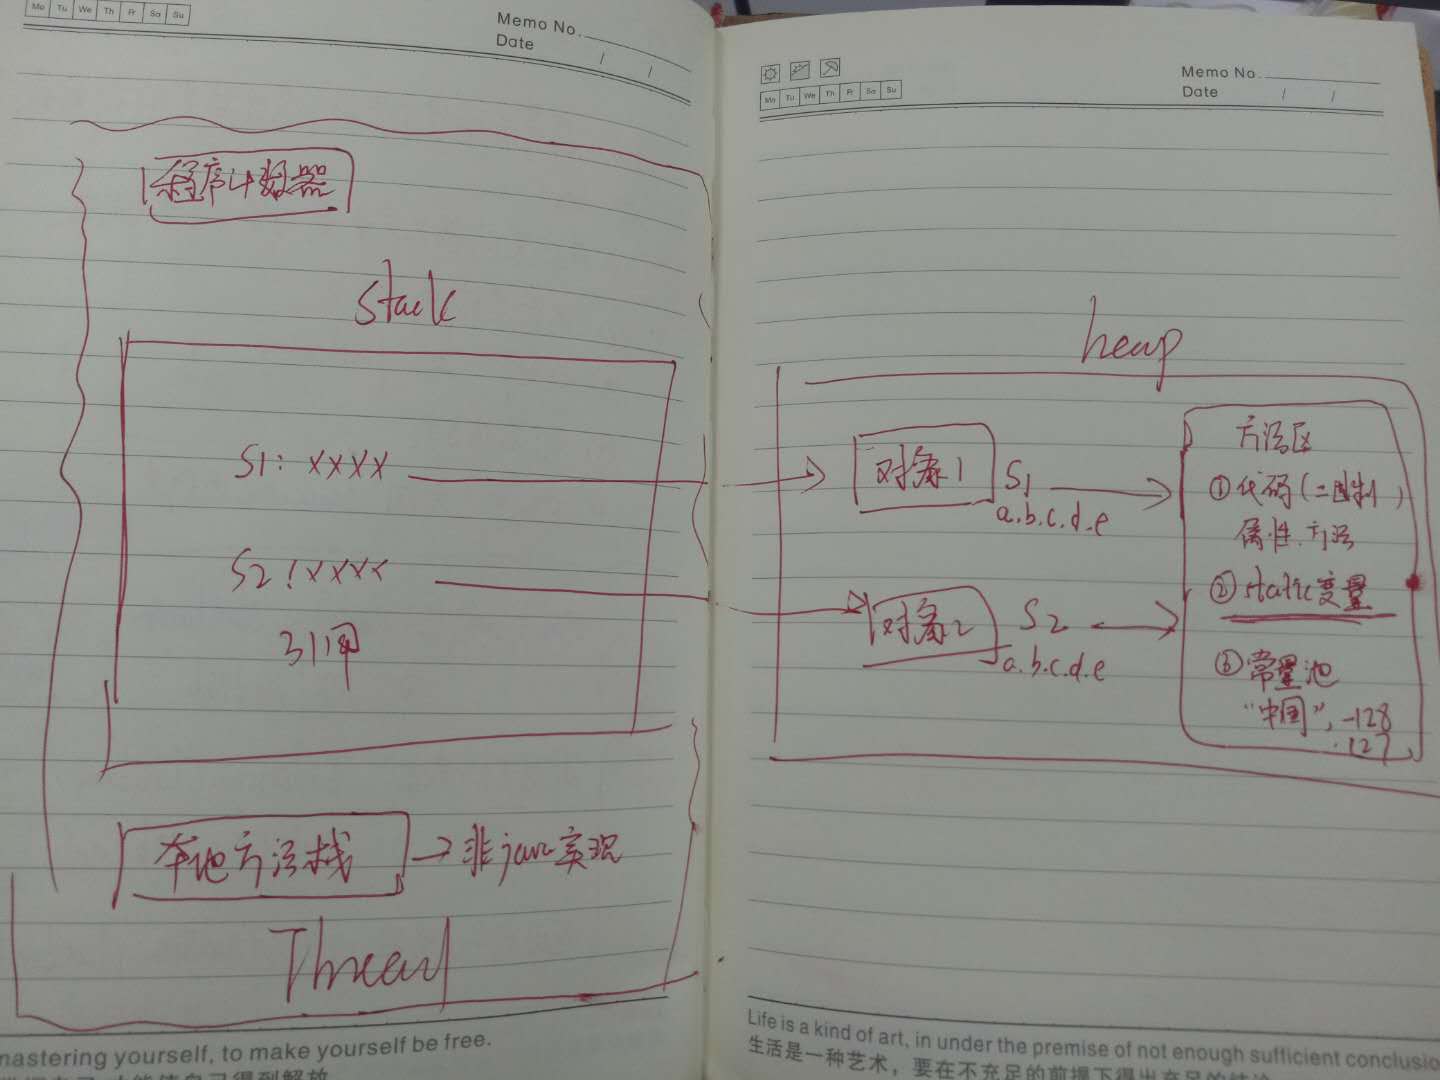 Mo Tu We Th Fr Sa Su
Memo No.
Date / /
程序计数器
stack
S1: xxxx
S2: xxxx
引用
本地方法栈 → 非java实现
Thread
mastering yourself, to make yourself be free.
Memo No.
Mo Tu We Th Fr Sa Su
Date / /
heap
对象1 S1
a.b.c.d.e
对象2 S2
a.b.c.d.e
方法区
①代码(二进制)
属性、方法
②static变量
③常量池
"中国", -128
127
Life is a kind of art, in under the premise of not enough sufficient conclusio
生活是一种艺术，要在不充足的前提下得出充足的结论